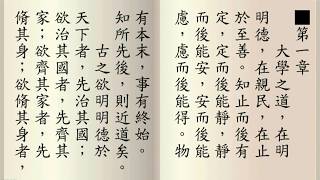 ■第一章
大學之道，在明
明德，在親民，在止
於至善。知止而后有
定，定而後能靜，靜
而後能安，安而後能
慮，慮而後能得。物
有本末，事有終始。
知所先後，則近道矣。
古之欲明明德於
天下者，先治其國；
欲治其國者，先齊其
家；欲齊其家者，先
脩其身；欲脩其身者，